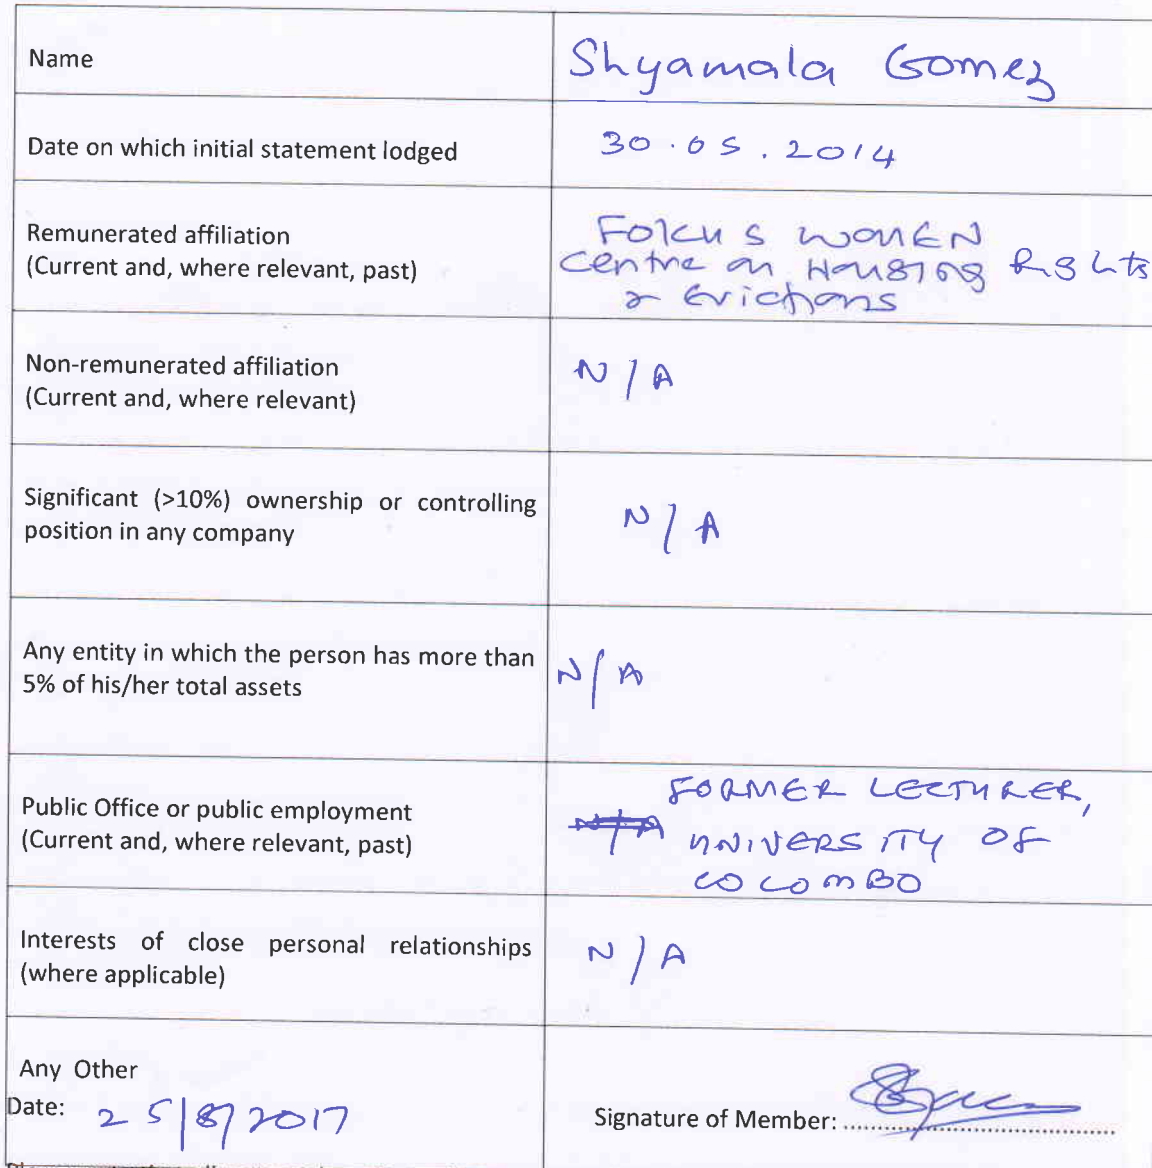 Name
Shyamala Gomez
Date on which initial statement lodged
30.05.2014
Remunerated affiliation
(Current and, where relevant, past)
FOKUS WOMEN
Centre on Housing Rights
& Evictions
Non-remunerated affiliation
(Current and, where relevant)
N/A
Significant (>10%) ownership or controlling
position in any company
N/A
Any entity in which the person has more than
5% of his/her total assets
N/A
Public Office or public employment
(Current and, where relevant, past)
FORMER LECTURER,
N/A UNIVERSITY OF
COLOMBO
Interests of close personal relationships
(where applicable)
N/A
Any Other
Date: 25/8/2017
Signature of Member: